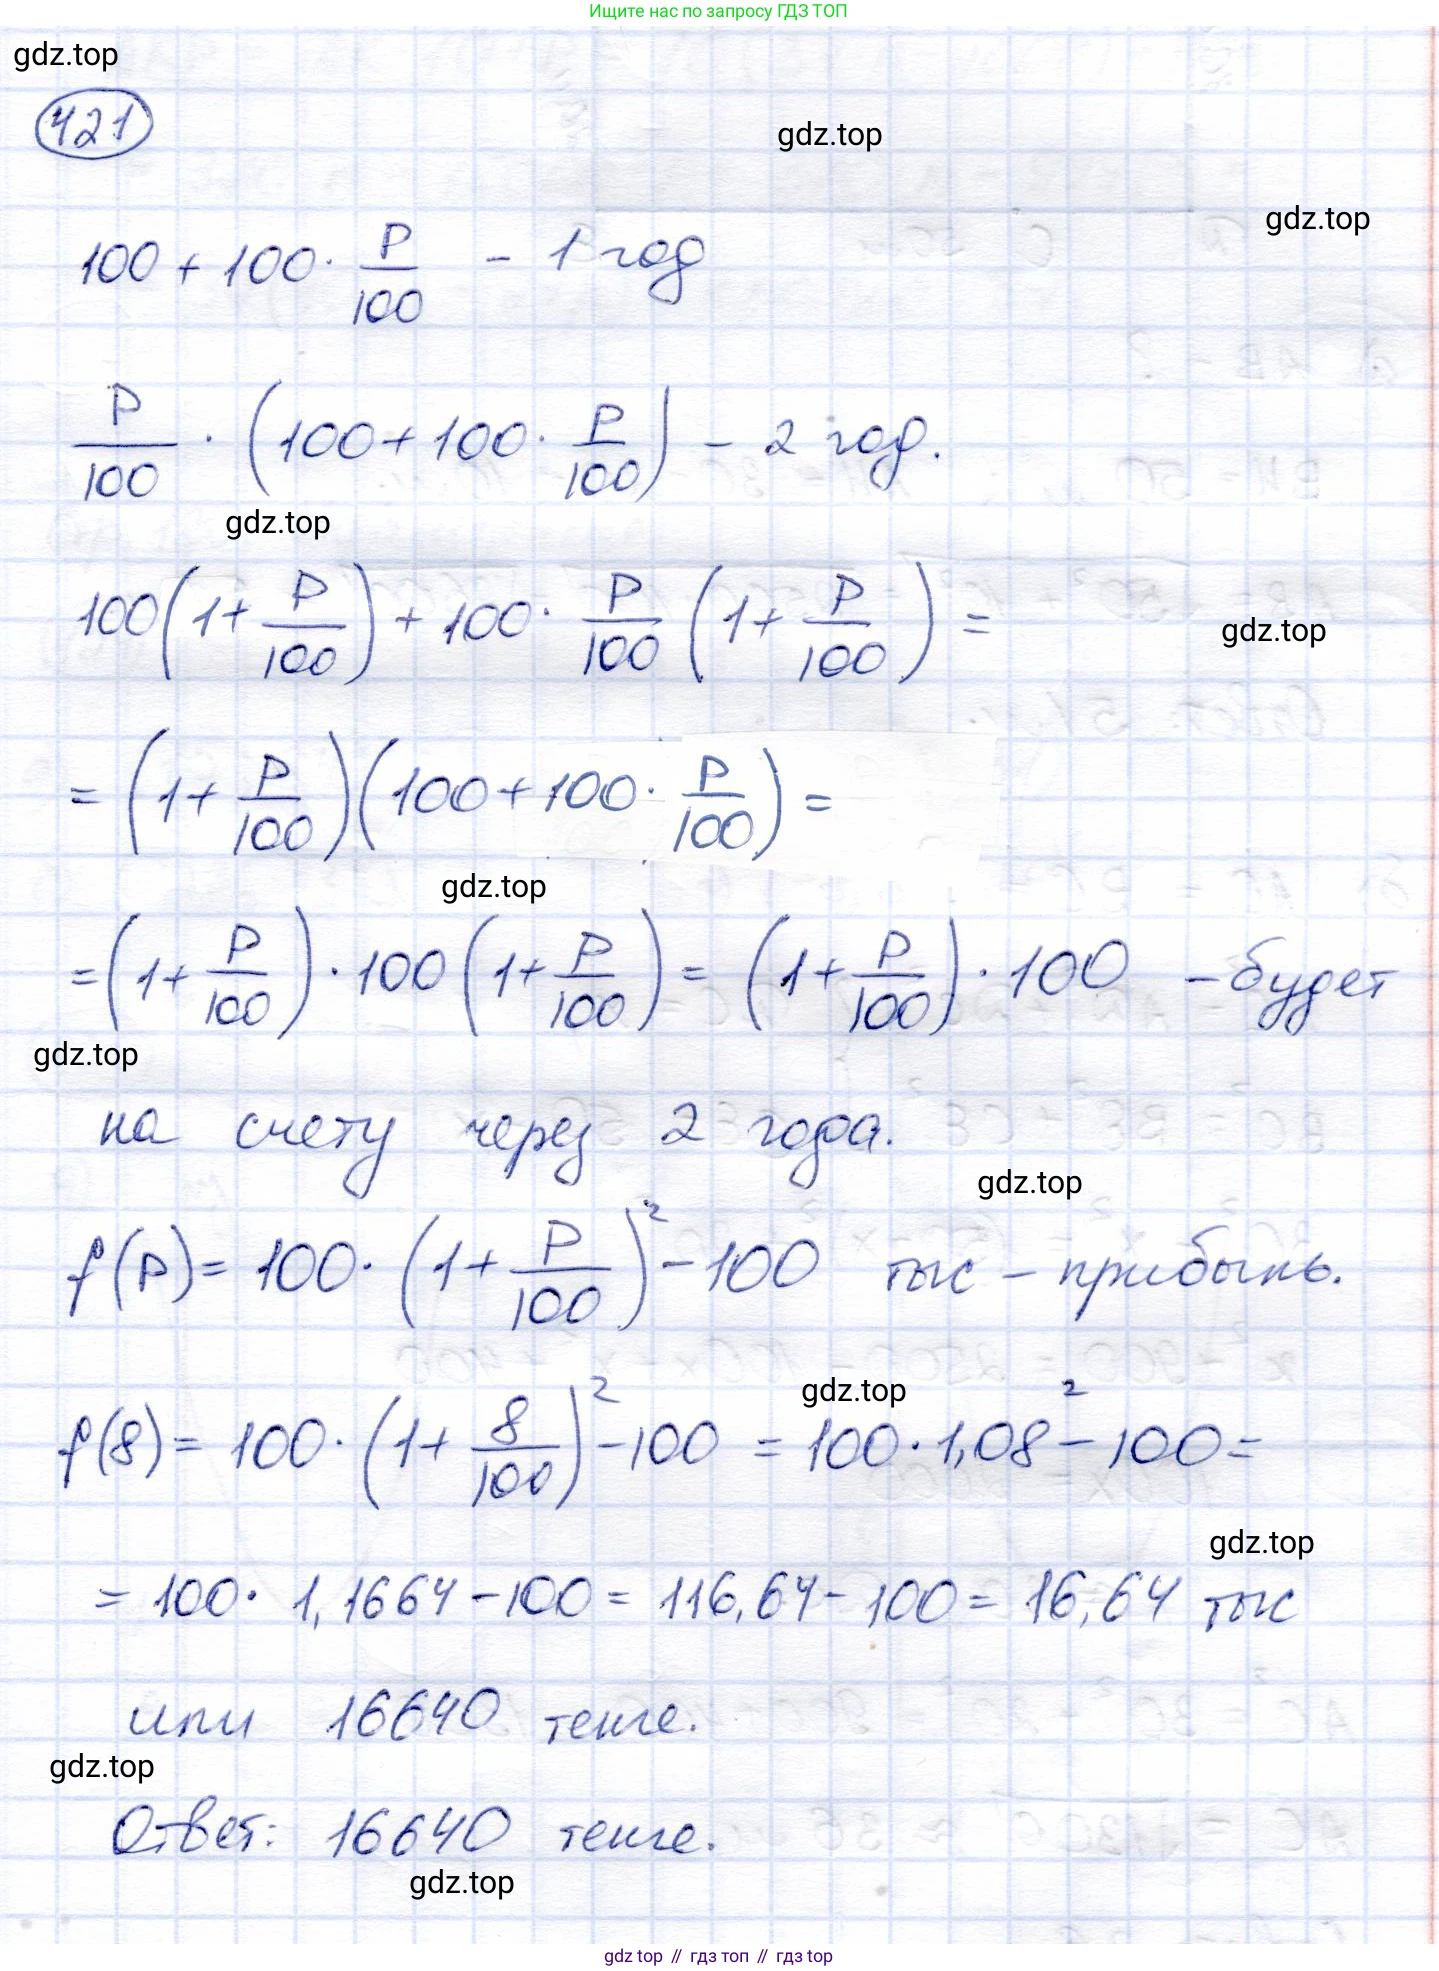 Ищите нас по запросу ГДЗ ТОП
gdz.top
421
gdz.top
gdz.top
100 + 100 · P/100 - 1 год
P/100 · (100 + 100 · P/100) - 2 год.
gdz.top
100(1 + P/100) + 100 · P/100 (1 + P/100) =
gdz.top
= (1 + P/100)(100 + 100 · P/100) =
gdz.top
= (1 + P/100) · 100 (1 + P/100) = (1 + P/100) · 100 - будет
gdz.top
на счету через 2 года.
gdz.top
f(P) = 100 · (1 + P/100)² - 100 тыс - прибыль.
gdz.top
f(8) = 100 · (1 + 8/100)² - 100 = 100 · 1,08² - 100 =
gdz.top
= 100 · 1,1664 - 100 = 116,64 - 100 = 16,64 тыс
или 16640 тенге.
gdz.top
Ответ: 16640 тенге.
gdz.top
gdz top // гдз топ // gdz top